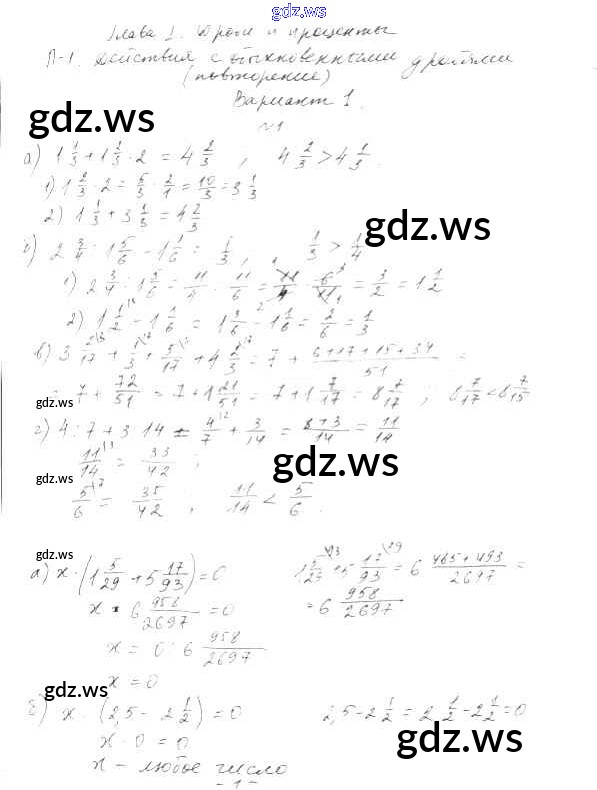 gdz.ws
Глава 1. Дроби и проценты
П-1. Действия с обыкновенными дробями
(повторение)
Вариант 1.
gdz.ws
№1
а) 1 1/3 + 1 2/3 · 2 = 4 2/3 , 4 2/3 > 4 1/3.
1) 1 2/3 · 2 = 5/3 · 2/1 = 10/3 = 3 1/3
2) 1 1/3 + 3 1/3 = 4 2/3
gdz.ws
б) 2 3/4 : 1 5/6 - 1 1/6 = 1/3, 1/3 > 1/4
1) 2 3/4 : 1 5/6 = 11/4 : 11/6 = 11/4 · 6/11 = 3/2 = 1 1/2
2) 1 1/2 - 1 1/6 = 1 3/6 - 1 1/6 = 2/6 = 1/3
в) 3 2/17 + 1/3 + 5/17 + 4 2/3 = 7 + (6+17+15+34)/51 =
= 7 + 72/51 = 7 + 1 21/51 = 7 + 1 7/17 = 8 7/17 ; 8 7/17 < 8 7/15
gdz.ws
г) 4 : 7 + 3 : 14 = 4/7 + 3/14 = (8+3)/14 = 11/14
gdz.ws
11/14 = 33/42 ;
gdz.ws
5/6 = 35/42 ; 11/14 < 5/6.
gdz.ws
а) x · (1 5/29 + 5 17/93) = 0 1 5/29 + 5 17/93 = 6 (465+493)/2697 =
x · 6 958/2697 = 0 = 6 958/2697
gdz.ws
x = 0 : 6 958/2697
x = 0
gdz.ws
б) x · (2,5 - 2 1/2) = 0 2,5 - 2 1/2 = 2 1/2 - 2 1/2 = 0
x · 0 = 0
gdz.ws
x – любое число
- 1 -